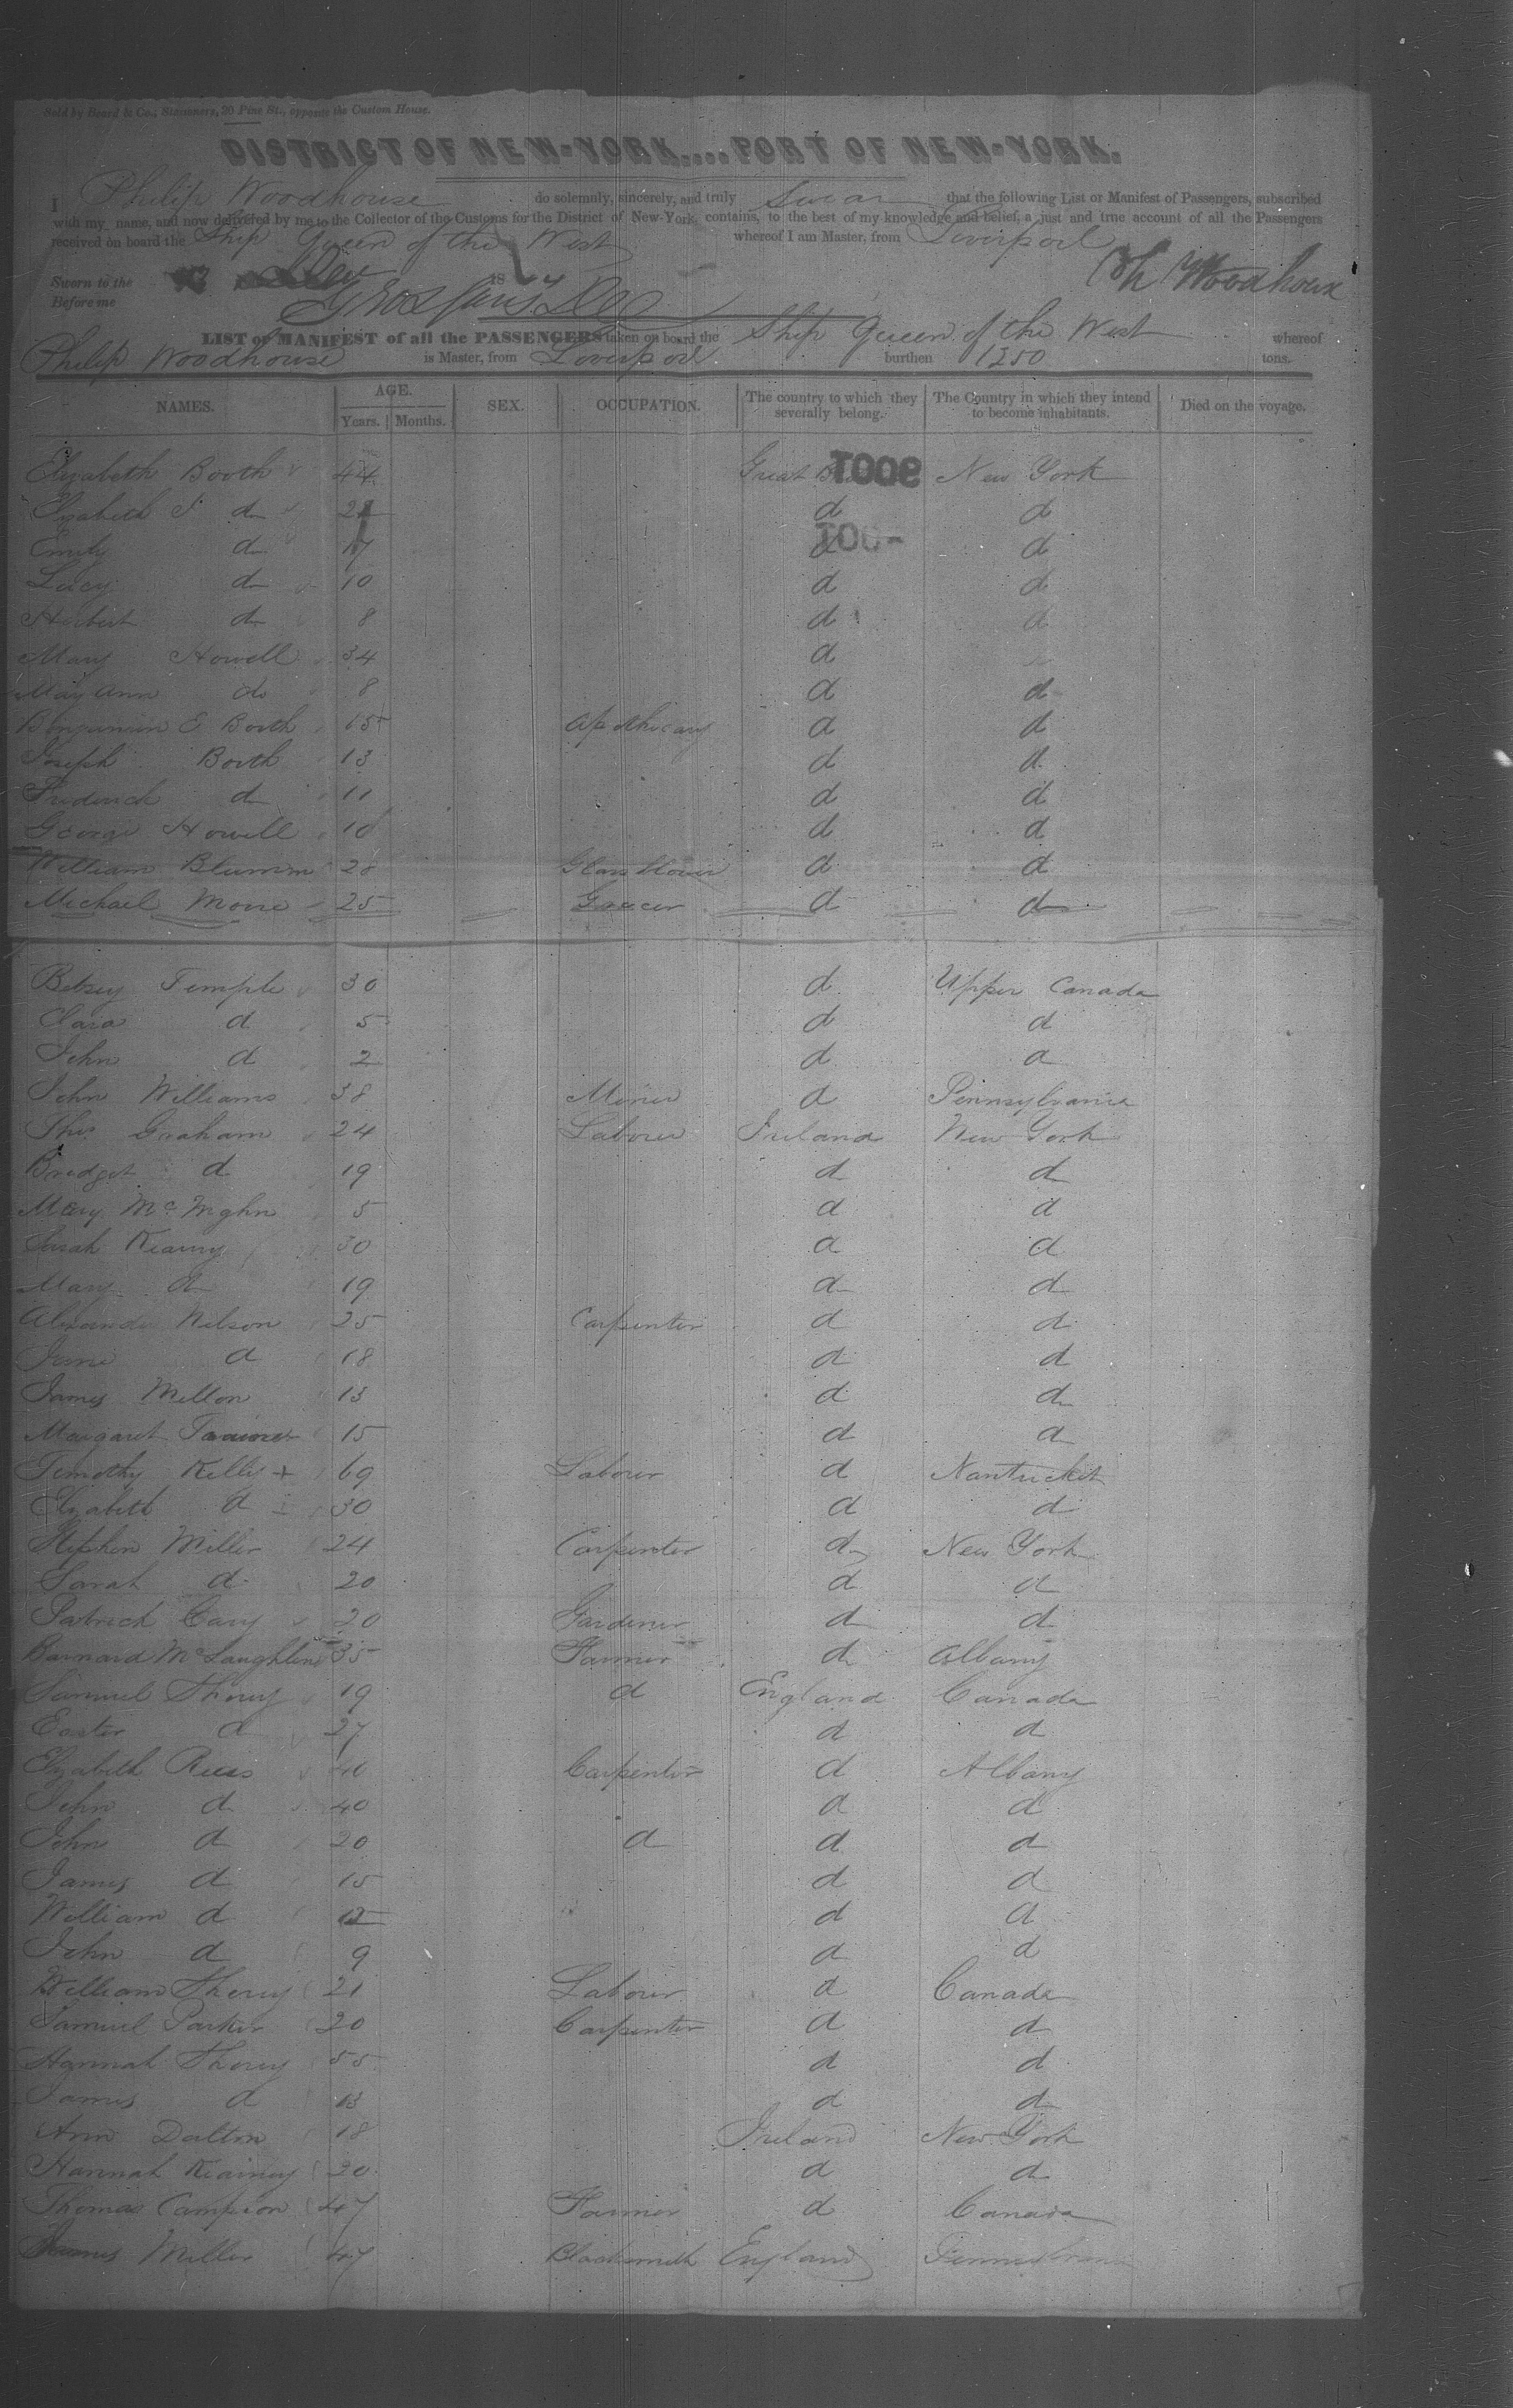 Sold by Beard & Co., Stationers, 20 Pine St., opposite the Custom House.
DISTRICT OF NEW-YORK....PORT OF NEW-YORK.
I Philip Woodhouse do solemnly, sincerely, and truly Swear that the following List or Manifest of Passengers, subscribed
with my name, and now delivered by me to the Collector of the Customs for the District of New-York, contains, to the best of my knowledge and belief, a just and true account of all the Passengers
received on board the Ship Queen of the West whereof I am Master, from Liverpool
Sworn to the Dec 18 Ph Woodhouse
Before me
LIST or MANIFEST of all the PASSENGERS taken on board the Ship Queen of the West whereof
Philip Woodhouse is Master, from Liverpool burthen 1250 tons.
NAMES. AGE. Years. Months. SEX. OCCUPATION. The country to which they severally belong. The Country in which they intend to become inhabitants. Died on the voyage.
Elizabeth Booth 44 Great New York
Elizabeth d d d
Emily d 17 d d
Lucy d 10 d d
Herbert d 8 d d
Mary Howell 34 d
Mary Ann do 8 d d
Benjamin E Booth 15 Apothicary d d
Joseph Booth 13 d d
Frederick d 11 d d
George Howell 10 d d
William 20 Glass blower d d
Michael Moore 25 Grocer d d
Betsey Temple 30 d Upper Canada
Clara d 5 d d
John d 2 d d
John Williams 38 Miner d Pennsylvania
Thos Graham 24 Labourer Ireland New York
Bridget d 19 d d
Mary 5 d d
Sarah Kearny 30 d d
Mary d 19 d d
Alexander Nelson 25 Carpenter d d
Jane d 18 d d
James Mellon 13 d d
Margaret 15 d d
Timothy Kelly + 69 Labourer d Nantucket
Elizabeth d 30 d d
Stephen Miller 24 Carpenter d New York
Sarah d 20 d d
Patrick Cary 20 Gardener d d
Barnard McLaughlin 35 Farmer d Albany
Samuel 19 d England Canada
Easter d 27 d d
Elizabeth Rees 40 Carpenter d Albany
John d 40 d d
John d 20 d d d
James d 15 d d
William d 12 d d
John d 9 d d
William 21 Labourer d Canada
Samuel Parker 20 Carpenter d d
Hannah 55 d d
James d 13 d d
Ann Dalton 18 Ireland New York
Hannah Kearney 20 d d
Thomas Campion 47 Farmer d Canada
Miller 47 Blacksmith England Pennsylvania